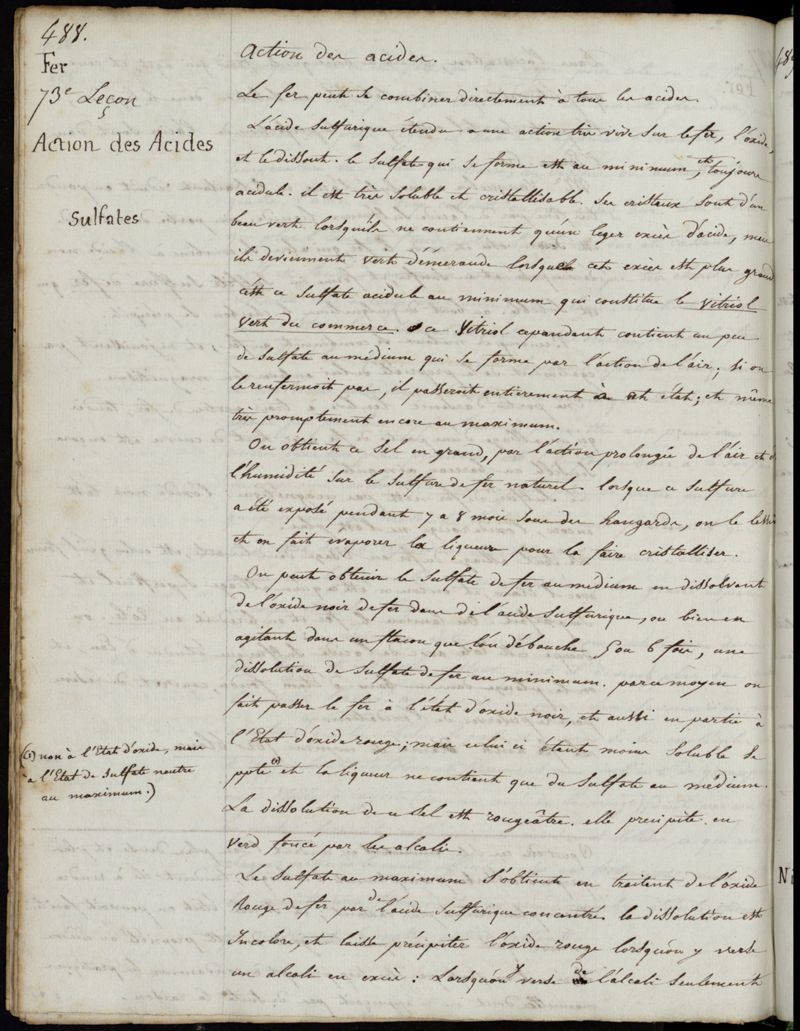 488.
Fer
73e Leçon
Action des Acides
Sulfates
(1) non à l'Etat d'oxide, mais
à l'Etat de Sulfate neutre
au maximum.)
Action des acides.
Le fer peut se combiner directement à tous les acides.
L'acide Sulfurique étendu a une action très vive sur le fer, l'oxide,
et le dissout. le Sulfate qui se forme est au minimum, et toujours
acidule. il est très soluble et cristallisable. Ses cristaux sont d'un
beau vert lorsqu'ils ne contiennent qu'un leger excès d'acide, mais
ils deviennent vert d'émeraude lorsque cet excès est plus grand
c'est ce Sulfate acidule au minimum qui constitue le vitriol
vert du commerce. ce Vitriol cependant contient un peu
de Sulfate au medium qui se forme par l'action de l'air; si on
le renfermoit pas, il passeroit entierement à cet état; et même
très promptement encore au maximum.
On obtient ce Sel en grand, par l'action prolongée de l'air et de
l'humidité sur le Sulfure de fer naturel. lorsque ce Sulfure
a été exposé pendant 7 à 8 mois sous des hangards, on le lessive
et on fait évaporer la liqueur pour la faire cristalliser.
On peut obtenir le Sulfate de fer au medium en dissolvant
de l'oxide noir de fer dans de l'acide Sulfurique, ou bien en
agitant dans un flacon que l'on débouche 5 ou 6 fois, une
dissolution de Sulfate de fer au minimum. par ce moyen on
fait passer le fer à l'état d'oxide noir, et aussi en partie à
l'Etat d'oxide rouge; mais celui ci étant moins Soluble se
ppte (1) et la liqueur ne contient que du Sulfate au medium.
La dissolution de ce Sel est rougeâtre. elle precipite en
verd foncé par les alcalis.
Le Sulfate au maximum S'obtient en traitent de l'oxide
Rouge de fer par de l'acide Sulfurique concentré. la dissolution est
Incolore, et laisse précipiter l'oxide rouge lorsqu'on y verse
un alcali en excès: Lorsqu'on y verse de l'alcali seulement